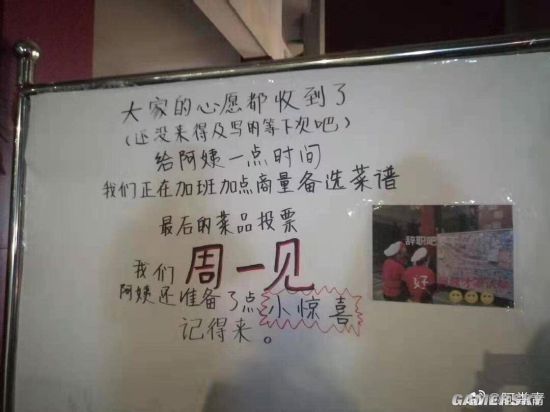 大家的心愿都收到了
(还没来得及写的等下次吧)
给阿姨一点时间
我们正在加班加点商量备选菜谱
最后的菜品投票
我们 周一见
阿姨还准备了点小惊喜
记得来。
辞职吧
好
GAMERSKY